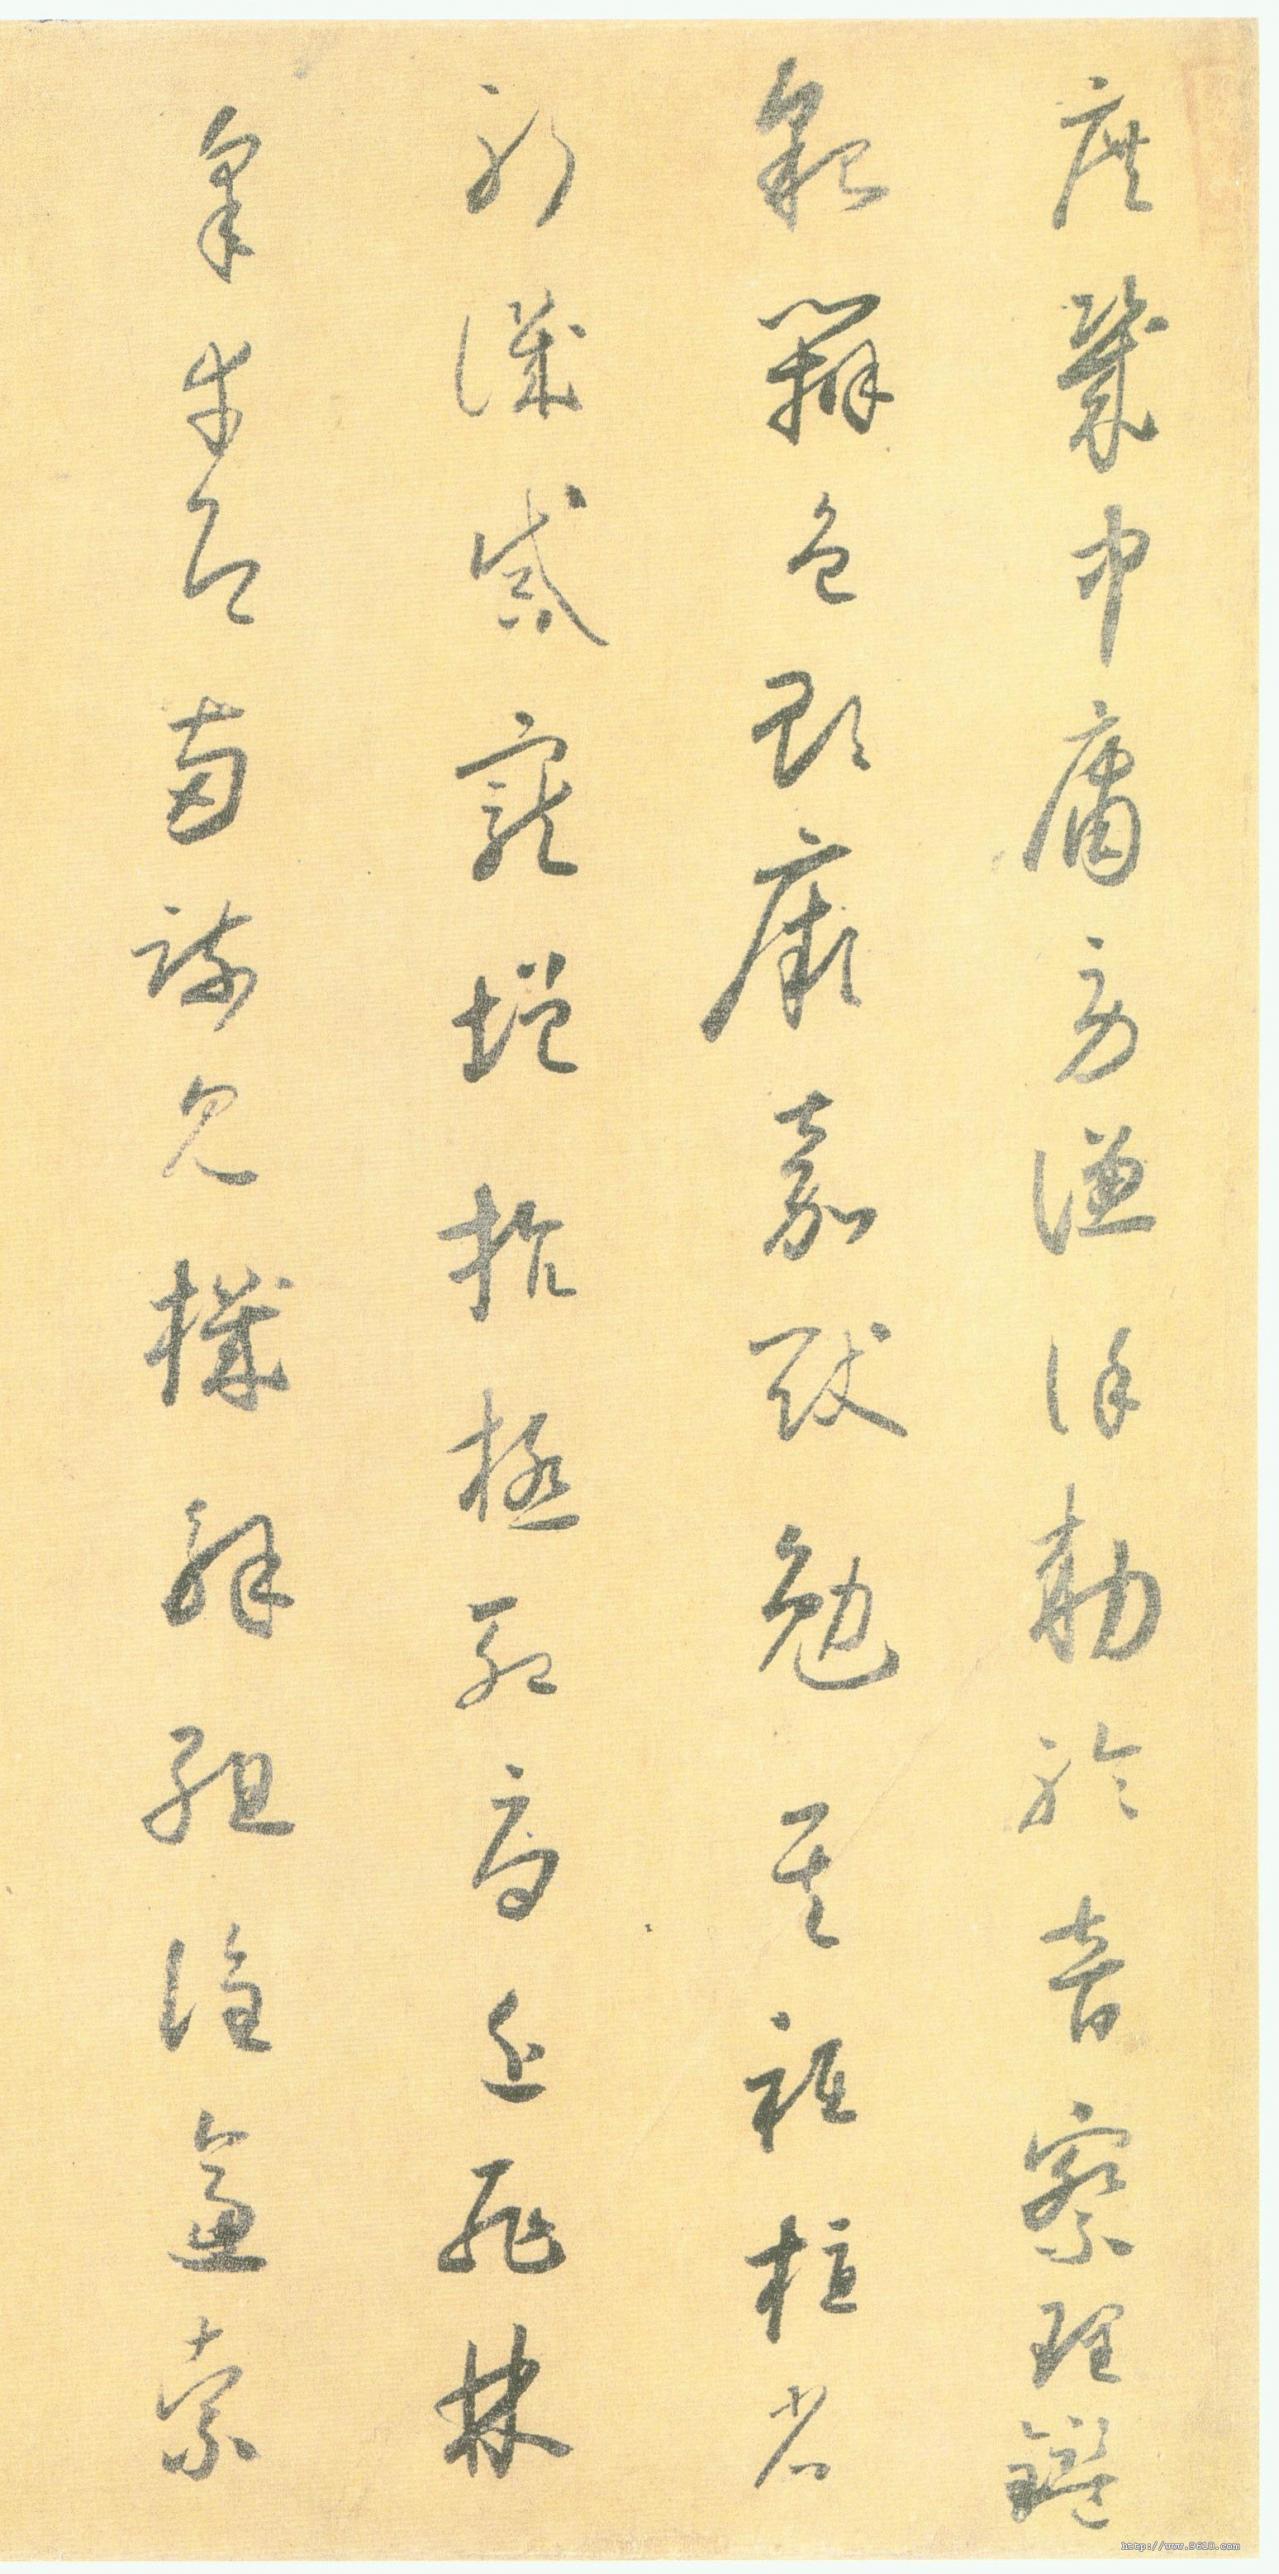 庶幾中庸勞謙謹勅聆音察理鑑
貌辨色貽厥嘉猷勉其祗植省
躬譏誡寵增抗極殆辱近恥林
皋幸即兩疏見機解組誰逼索
http://www.9610.com